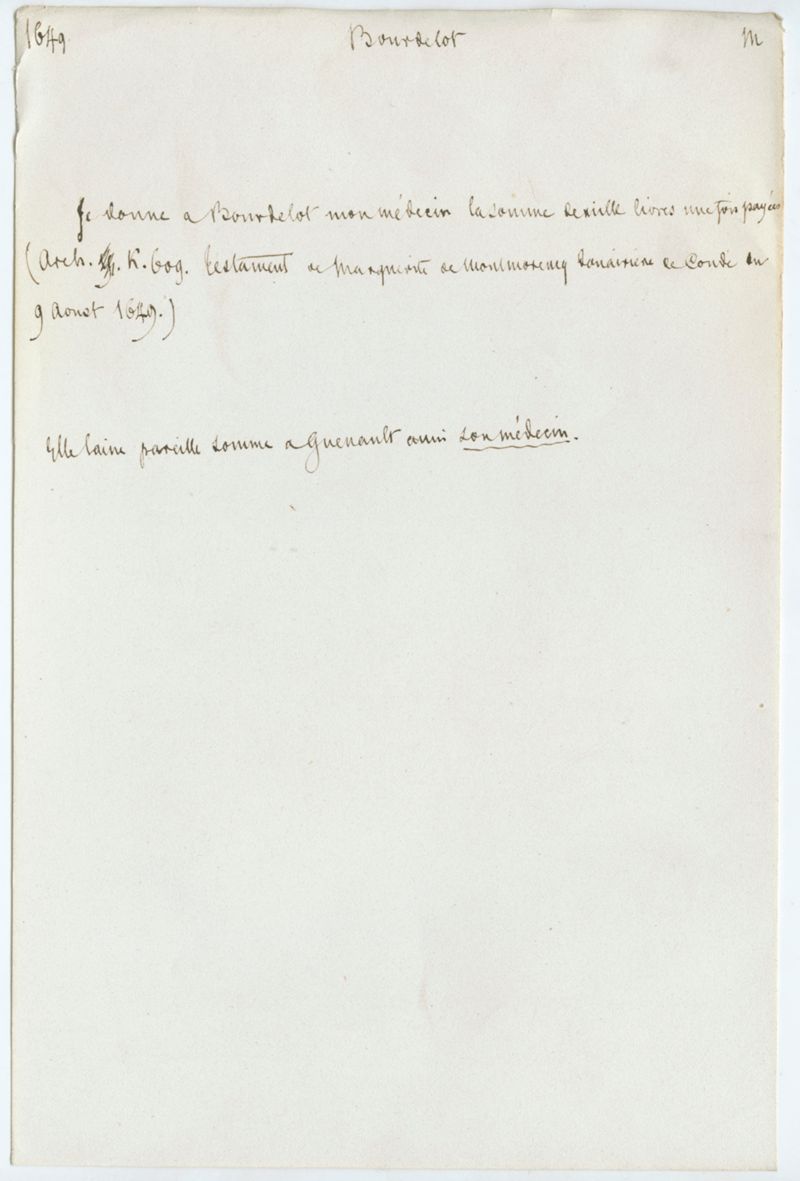 1649 Bourdelot M
Je donne a Bourdelot mon médecin la somme de mille livres une fois payées
(Arch. K. 609. Testament de Marguerite de Montmorency Douairière de Condé du
9 Aoust 1649.)
Elle laisse pareille somme a Guenault aussi son médecin.